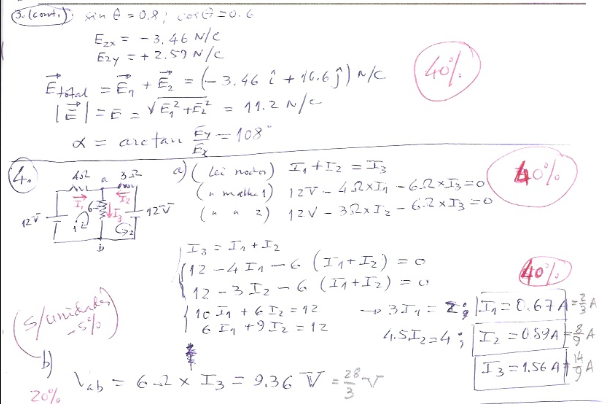 3. (cont.) sin θ = 0.8 ; cos θ = 0.6
E2x = - 3.46 N/C
E2y = + 2.59 N/C
E⃗total = E⃗1 + E⃗2 = (- 3.46 î + 10.6 ĵ) N/C
40%
|E⃗| = E = √E1² + E2² = 11.2 N/C
α = arctan Ey/Ex = 108°
4.
4Ω a 3Ω
I1 6Ω I2
I3
12V 12V
1 2
b
a) (Lei nodos) I1 + I2 = I3
(" malha 1) 12V - 4Ω×I1 - 6Ω×I3 = 0
(" " 2) 12V - 3Ω×I2 - 6Ω×I3 = 0
40%
I3 = I1 + I2
12 - 4 I1 - 6 (I1 + I2) = 0
12 - 3 I2 - 6 (I1 + I2) = 0
10 I1 + 6 I2 = 12
6 I1 + 9 I2 = 12
→ 3 I1 = 2 ; I1 = 0.67 A = 2/3 A
4.5 I2 = 4 ; I2 = 0.89 A = 8/9 A
I3 = 1.56 A = 14/9 A
40%
(s/unidades) -5%
b)
20%
Vab = 6Ω × I3 = 9.36 V = 28/3 V